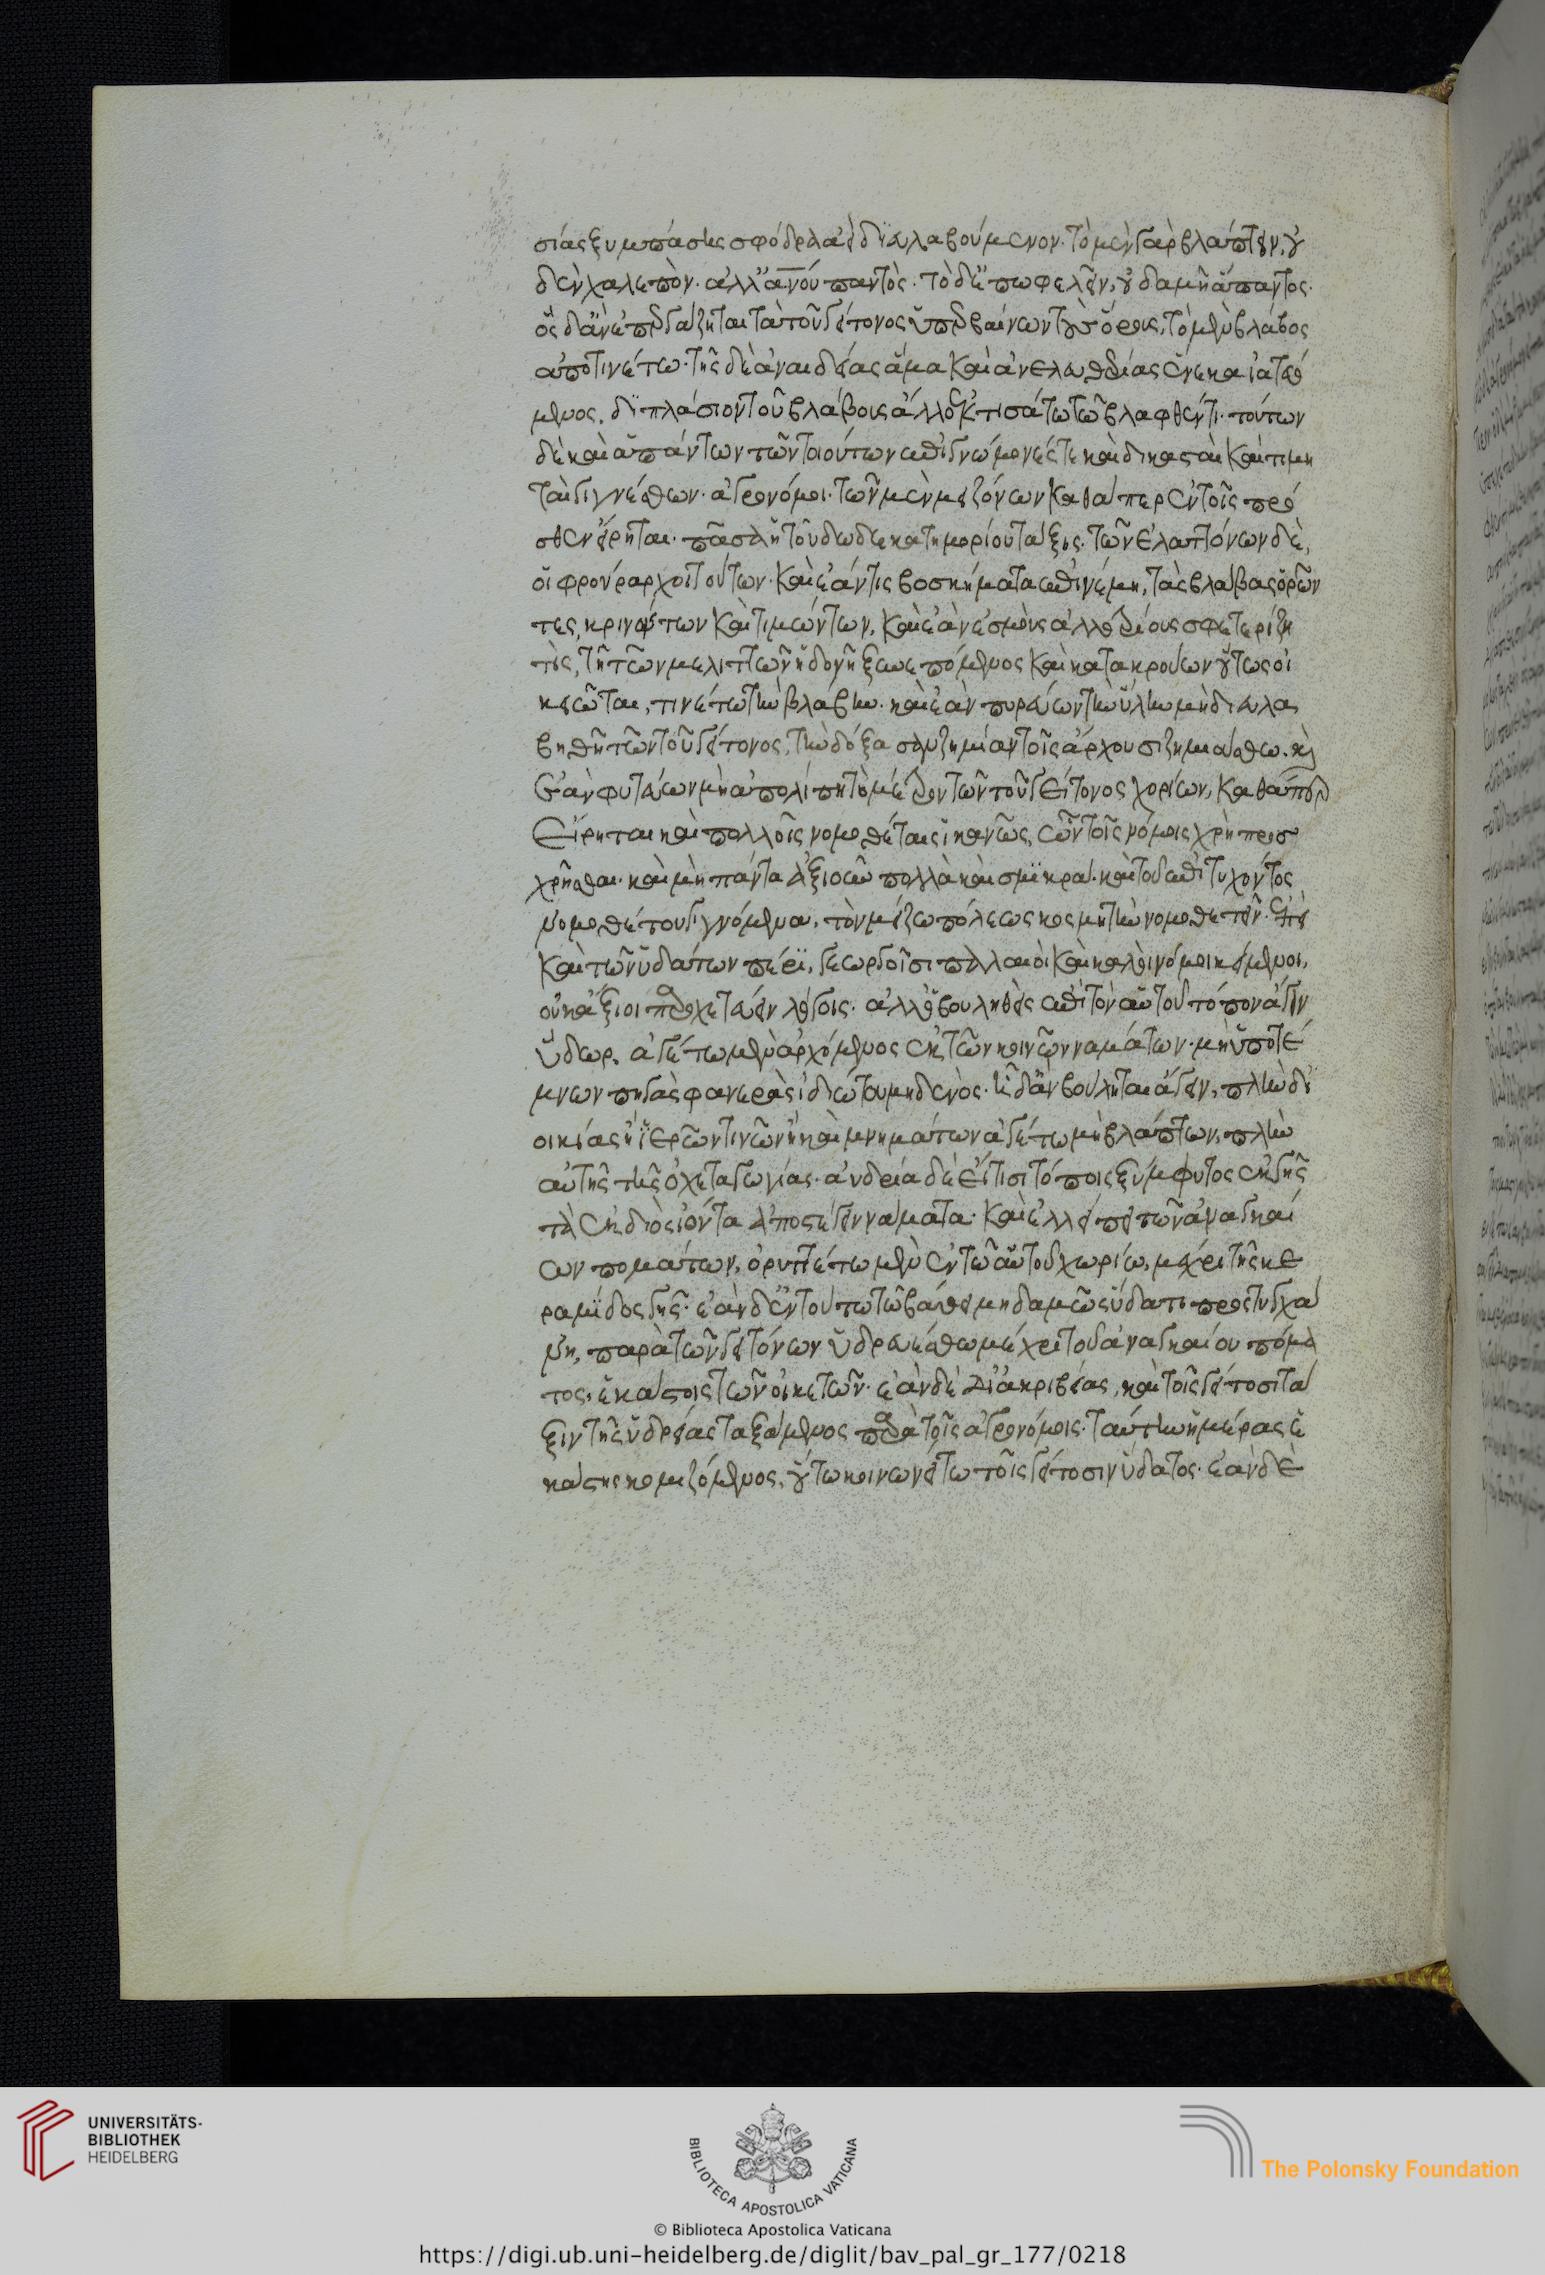 σίας ξυμπάσης σφόδρα εὐδιαλαβούμενον· τὸ μὲν γὰρ βλάπτειν, οὐ
δὲν χαλεπὸν· ἀλλ' ἀν̅ου παντὸς· τὸ δ' ἐπωφελεῖν, οὐδαμῆ ἅπαντος·
ὃς δ' ἂν ἐπεργάζηται τὰ τοῦ γείτονος ὑπερβαίνων τοὺς ὅρους, τὸ μὲν βλάβος
ἀποτινέτω· τῆς δὲ ἀναιδείας ἅμα καὶ ἀνελευθερίας ἕνεκα ἰατρευό
μενος, διπλάσιον τοῦ βλάβους ἄλλο ἐκτισάτω τῶ βλαφθέντι· τούτων
δὲ καὶ ἁπάντων τῶν τοιούτων ἐπιγνώμονές τε καὶ δικασταὶ καὶ τιμη
ταὶ γιγνέσθων· ἀγρονόμοι· τῶν μὲν μειζόνων καθάπερ ἐν τοῖς πρό
σθεν εἴρηται· πᾶσα ἡ τοῦ δωδεκατημορίου τάξις· τῶν ἐλαττόνων δὲ,
οἱ φρούραρχοι τούτων· καὶ ἐάν τις βοσκήματα ἐπινέμη, τὰς βλάβας ὁρῶν
τες, κρινόντων καὶ τιμώντων, καὶ ἐὰν ἐσμοὺς ἀλλοτρίους σφετερίζη
τις, τῆ τῶν μελιττῶν ἡδονῆ ξυνεπόμενος καὶ κατακρούων οὕτως οἰ
κειῶται, τινέτω τὴν βλάβην· καὶ ἐὰν πυρεύων τὴν ὕλην μὴ διευλα
βηθῆ τῶν τοῦ γείτονος, τὴν δόξασαν ζημίαν τοῖς ἄρχουσι ζημιούσθω· καὶ
ἐὰν φυτεύων μὴ ἀπολίπη τὸ μέτρον τῶν τοῦ γείτονος χωρίων, καθάπερ
εἴρηται καὶ πολλοῖς νομοθέταις ἱκανῶς, ὧν τοῖς νόμοις χρὴ προσ
χρῆσθαι· καὶ μὴ πάντα ἀξιοῦν πολλὰ καὶ σμικρὰ· καὶ τοῦ ἐπιτυχόντος
νομοθέτου γιγνόμενα, τὸν μείζω πόλεως κοσμητὴν νομοθετεῖν· ἐπεὶ
καὶ τῶν ὑδάτων πέρι, γεωργοῖσι παλαιοὶ καὶ καλοὶ νόμοι κείμενοι,
οὐκ ἄξιοι παροχετεύειν λόγοις· ἀλλ' ὁ βουληθεὶς ἐπὶ τὸν αὑτοῦ τόπον ἄγειν
ὕδωρ, ἀγέτω μὲν ἀρχόμενος ἐκ τῶν κοινῶν ναμάτων· μὴ ὑποτέ
μνων πηγὰς φανερὰς ἰδιώτου μηδενὸς· ᾗ δ' ἂν βούληται ἄγειν, πλὴν δι'
οἰκίας ἢ ἱερῶν τινῶν ἢ καὶ μνημάτων ἀγέτω μὴ βλάπτων, πλὴν
αὐτῆς τῆς ὀχεταγωγίας· ἀνδρία δὲ εἴ τισι τόποις ξύμφυτος ἐκ γῆς
τὰ ἐκ διὸς ἰόντα ἀποστέγει νάματα· καὶ ἐλλείπει τῶν ἀναγκαί
ων πομάτων, ὀρυττέτω μὲν ἐν τῶ αὑτοῦ χωρίω, μέχρι τῆς κε
ραμίδος γῆς· ἐὰν δ' ἐν τούτω τῶ βάθει μηδαμῶς ὕδατι προστυγχά
νη, παρὰ τῶν γειτόνων ὑδρευέσθω μέχρι τοῦ ἀναγκαίου πόμα
τος, ἑκάστοις τῶν οἰκετῶν· ἐὰν δὲ δι' ἀκριβείας, καὶ τοῖς γείτοσι τά
ξιν τῆς ὑδρείας ταξάμενος παρὰ τοῖς ἀγρονόμοις· ταύτην ἡμέρας ἑ
κάστης κομιζόμενος, οὕτω κοινωνείτω τοῖς γείτοσιν ὕδατος· ἐὰν δὲ
UNIVERSITÄTS-
BIBLIOTHEK
HEIDELBERG
BIBLIOTECA APOSTOLICA VATICANA
The Polonsky Foundation
© Biblioteca Apostolica Vaticana
https://digi.ub.uni-heidelberg.de/diglit/bav_pal_gr_177/0218